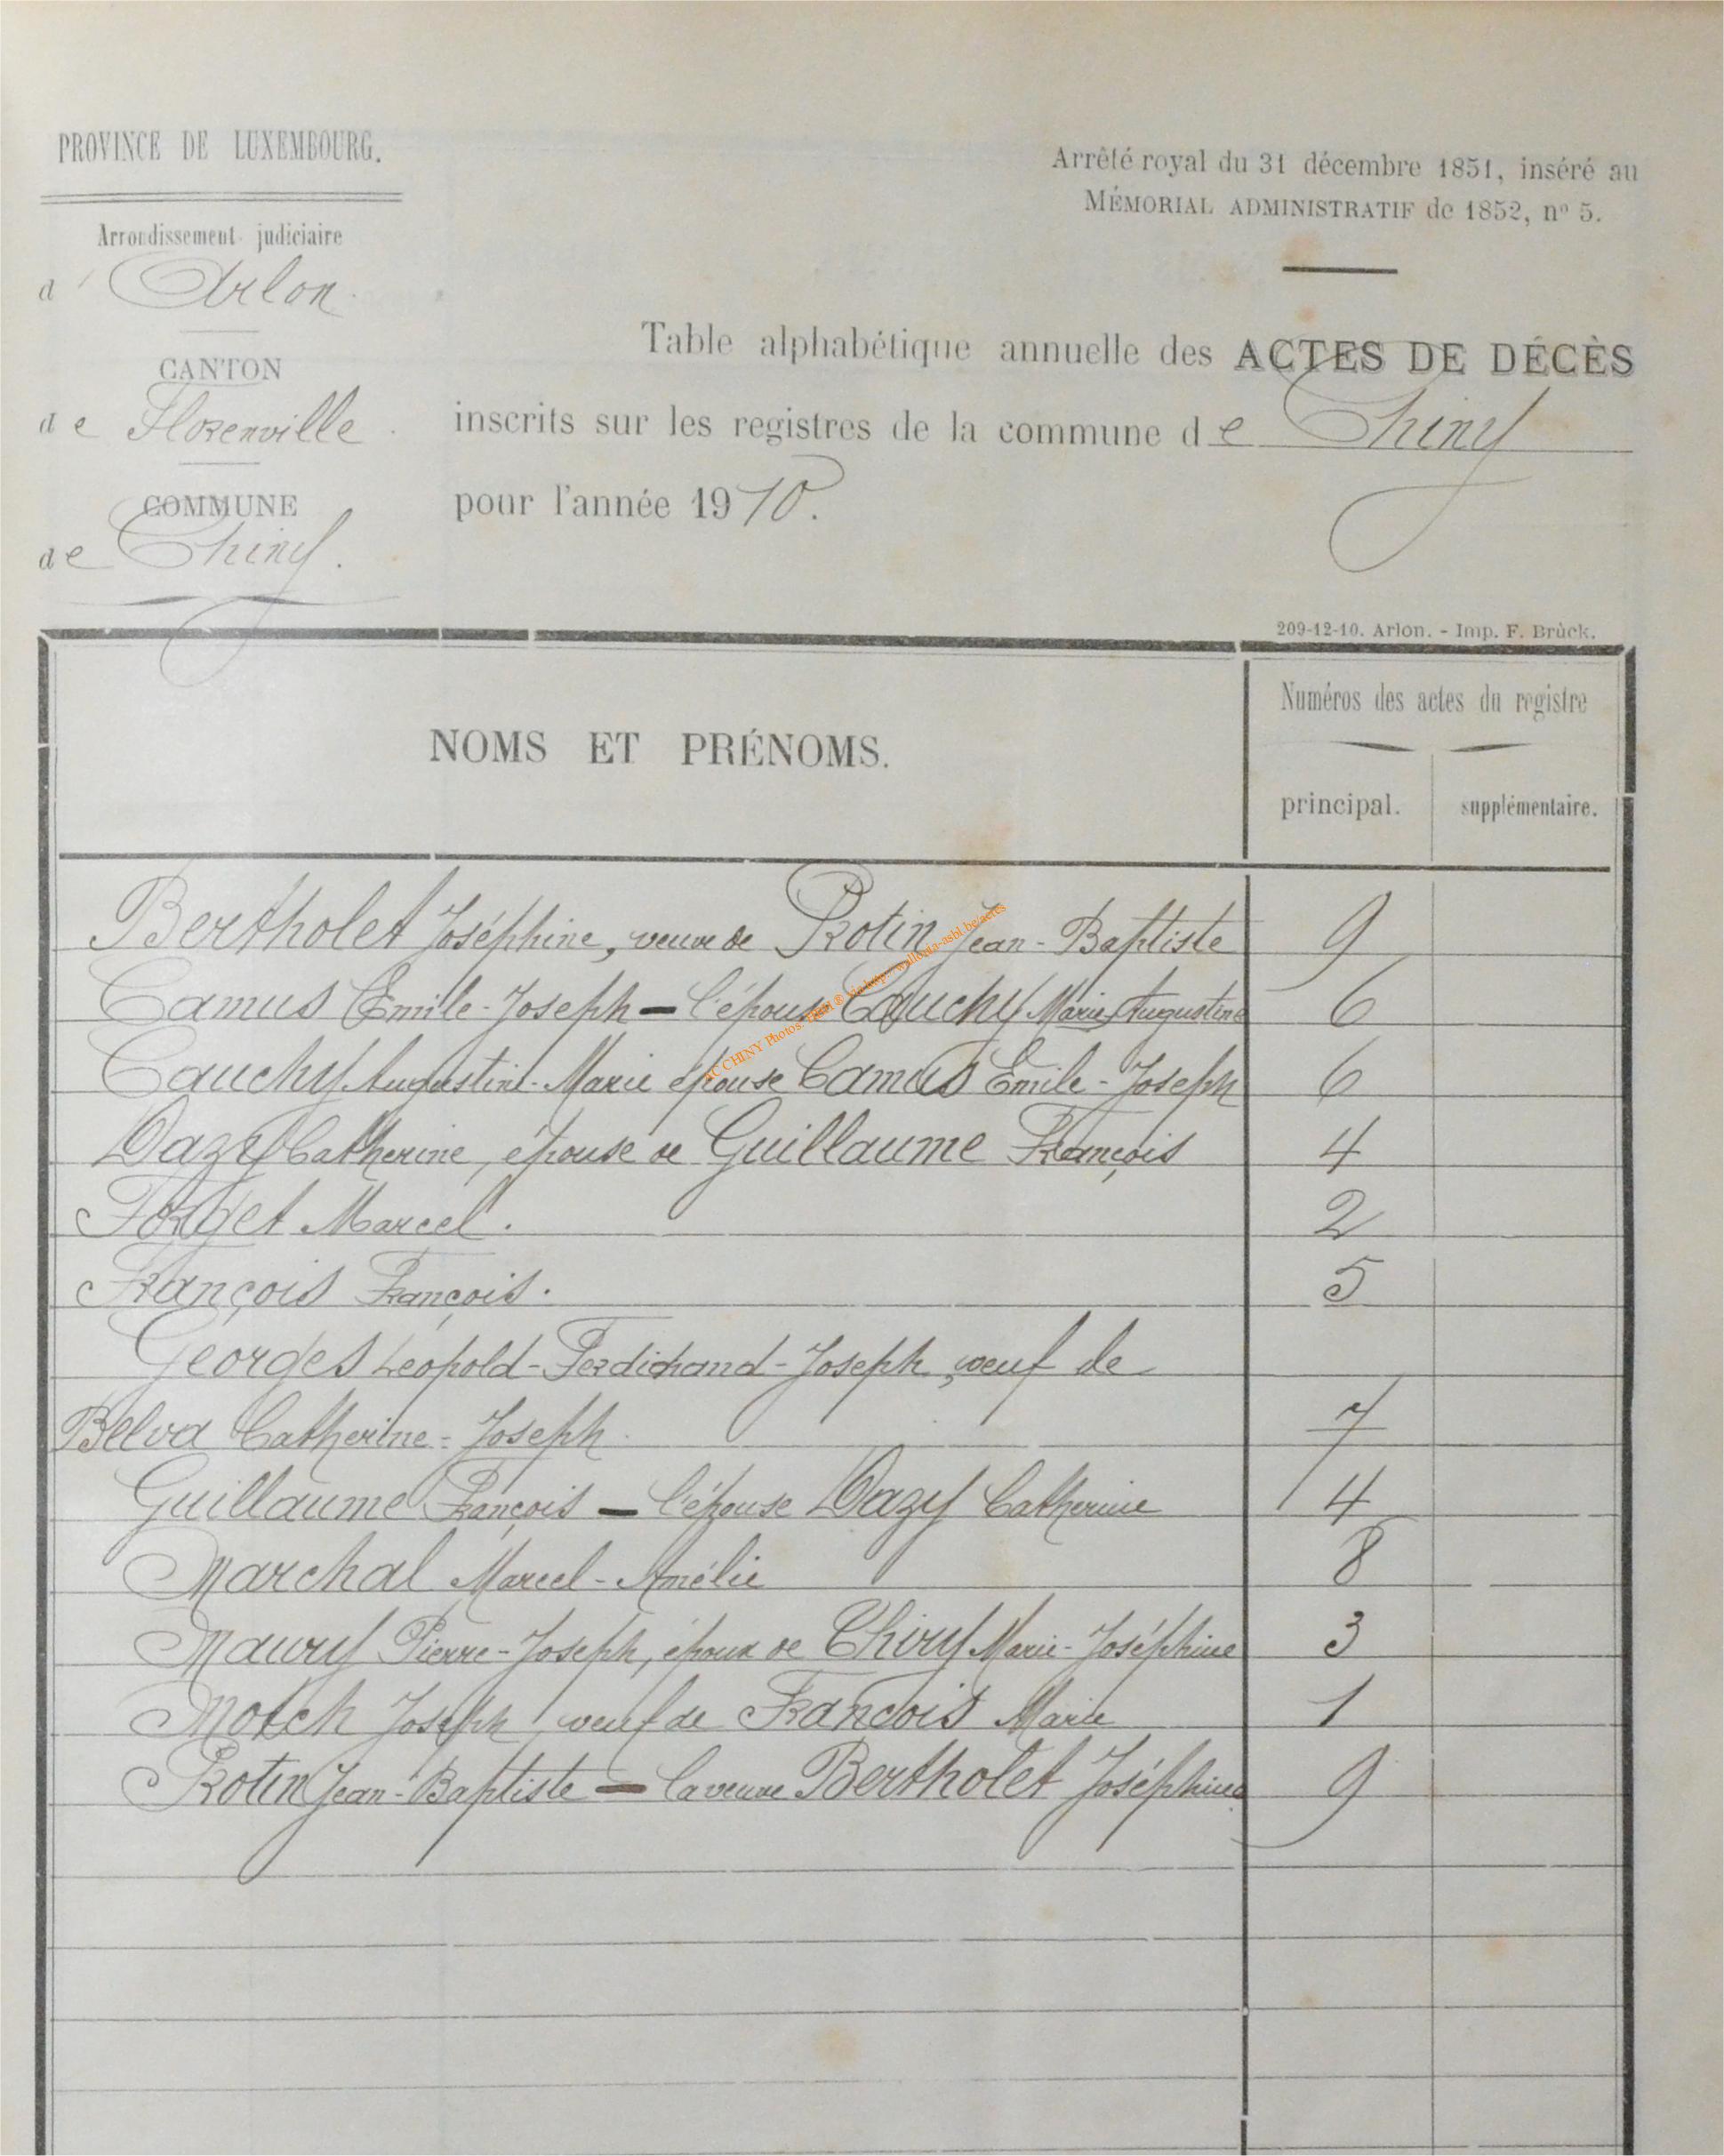 PROVINCE DE LUXEMBOURG.
Arrondissement judiciaire
d' Arlon.
CANTON
de Florenville.
COMMUNE
de Chiny.
Arrêté royal du 31 décembre 1851, inséré au
MÉMORIAL ADMINISTRATIF de 1852, nº 5.
Table alphabétique annuelle des ACTES DE DÉCÈS
inscrits sur les registres de la commune de Chiny
pour l'année 1910.
209-12-10. Arlon. - Imp. F. Brück.
NOMS ET PRÉNOMS.
Numéros des actes du registre
principal. supplémentaire.
Bertholet Joséphine, veuve de Rotin Jean-Baptiste 9
Camus Emile-Joseph - l'épouse Cauchy Marie Augustine 6
Cauchy Augustine-Marie épouse Camus Emile-Joseph 6
Dazy Catherine, épouse de Guillaume François 4
Forget Marcel. 2
François François. 5
Georges Léopold-Ferdinand-Joseph, veuf de
Belva Catherine-Joseph. 7
Guillaume François - l'épouse Dazy Catherine 4
Marchal Marcel-Amélie 8
Maury Pierre-Joseph, époux de Thiry Marie-Joséphine 3
Motch Joseph, veuf de François Marie 1
Rotin Jean-Baptiste - la veuve Bertholet Joséphine 9